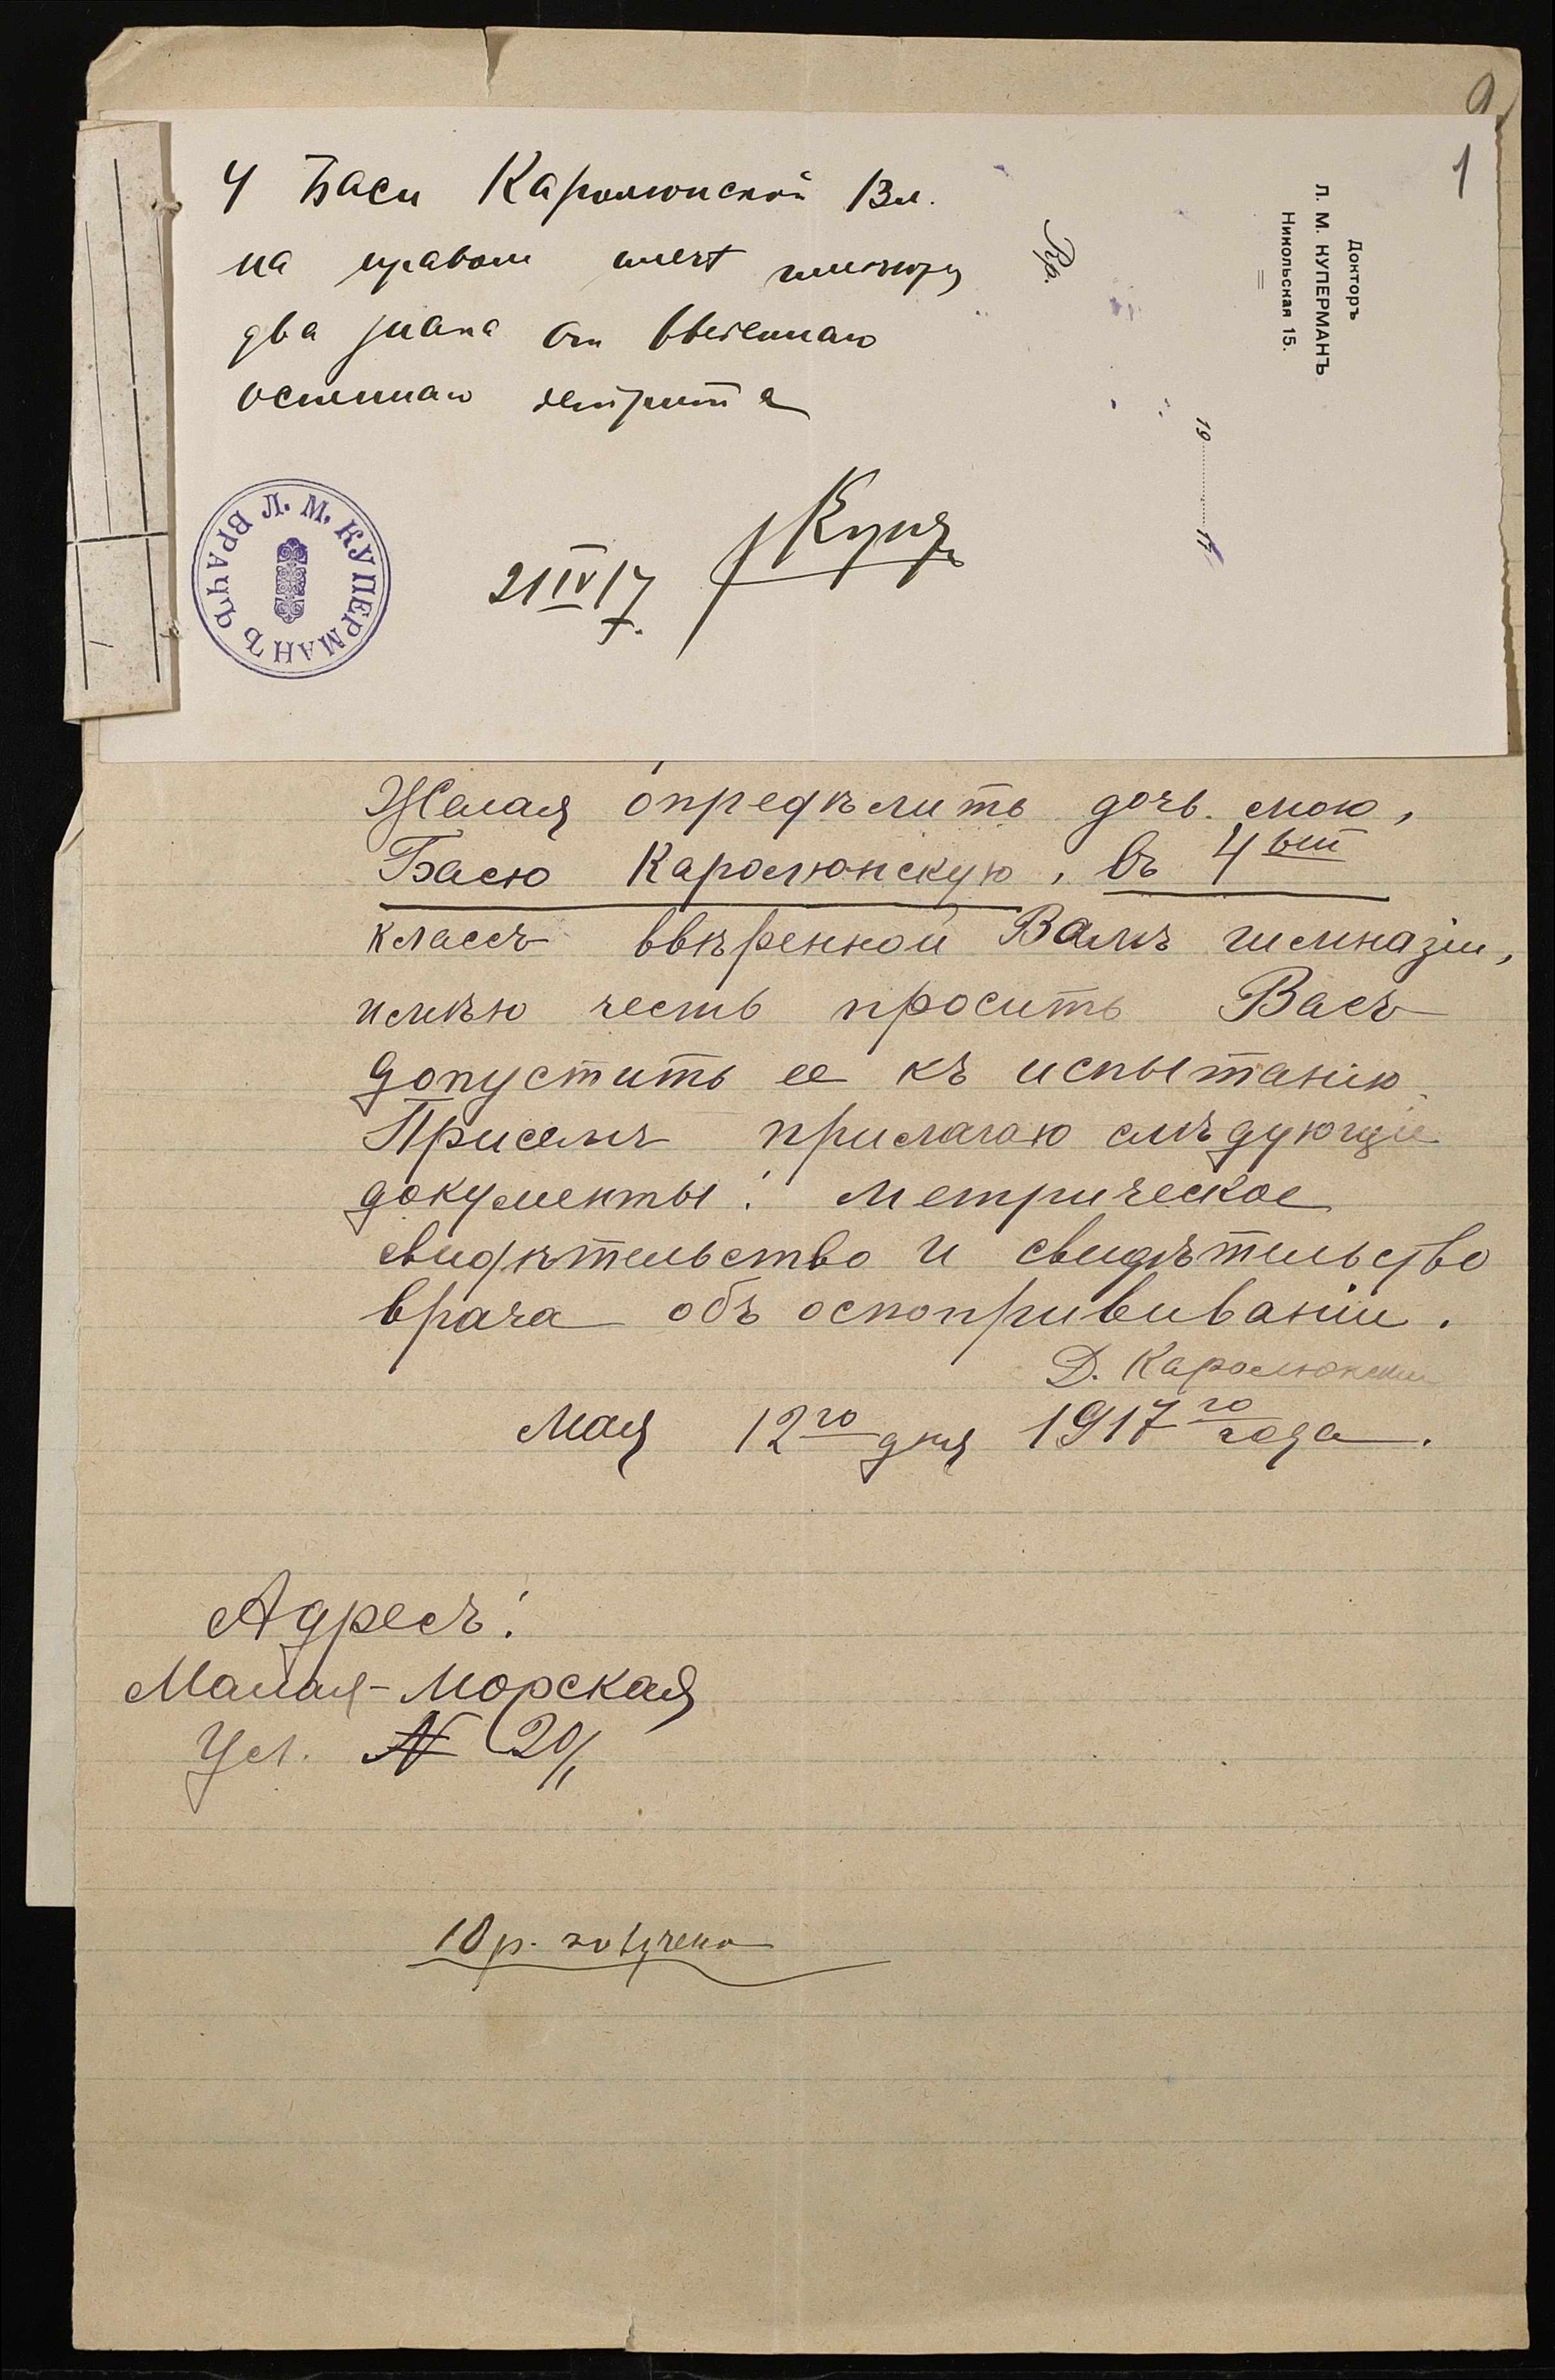 1
Докторъ
Л. М. КУПЕРМАНЪ
Никольская 15.
19 17
Rp.
У Баси Каролюнской 13 л.
на правом плечѣ
два знака от введеннаго
оспеннаго детрита
21 IV 17 г.
ВРАЧЪ Л. М. КУПЕРМАНЪ
Желая опредѣлить дочь мою,
Басю Каролюнскую, въ 4ый
классъ ввѣренной Вамъ гимназіи,
имѣю честь просить Васъ
допустить ее къ испытанію.
Присемъ прилагаю слѣдующіе
документы: метрическое
свидѣтельство и свидѣтельство
врача объ оспопрививаніи.
Д. Каролюнский
Мая 12го дня 1917го года.
Адресъ:
Малая-Морская
ул. № 20/1
10 р. получено